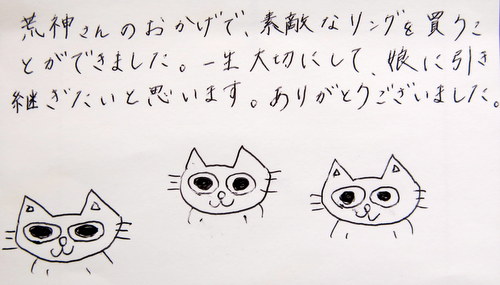 荒神さんのおかげで、素敵なリングを買うこ
とができました。一生大切にして、娘に引き
継ぎたいと思います。ありがとうございました。